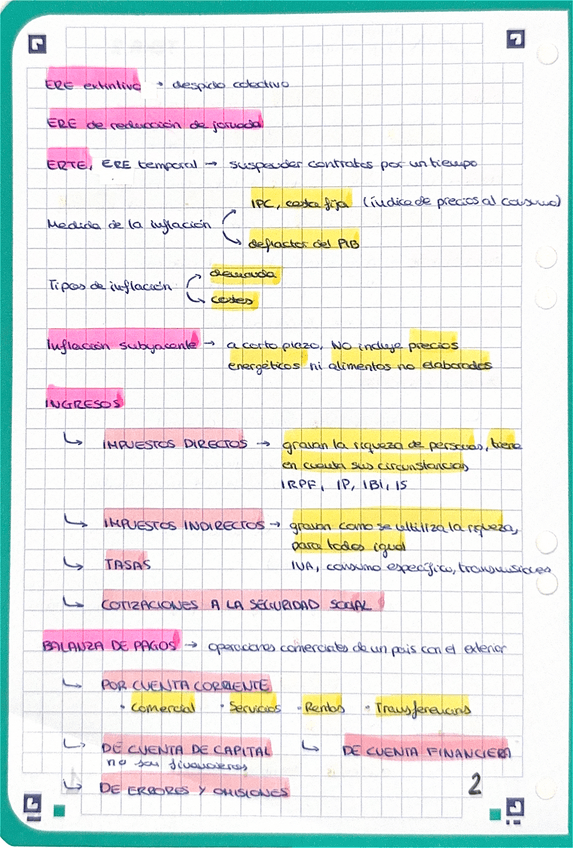 ERE extintivo • despido colectivo
ERE de reducción de jornada
ERTE, ERE temporal → suspender contratos por un tiempo
Medida de la inflación
IPC, cesta fija (índice de precios al consumo)
deflactor del PIB
Tipos de inflación
demanda
costes
Inflación subyacente → a corto plazo, NO incluye precios
energéticos ni alimentos no elaborados
INGRESOS
↳ IMPUESTOS DIRECTOS → gravan la riqueza de personas, tiene
en cuenta sus circunstancias
IRPF, IP, IBI, IS
↳ IMPUESTOS INDIRECTOS → gravan como se utiliza la riqueza,
para todos igual
↳ TASAS
IVA, consumo específico, transmisiones
↳ COTIZACIONES A LA SEGURIDAD SOCIAL
BALANZA DE PAGOS → operaciones comerciales de un país con el exterior
↳ POR CUENTA CORRIENTE
• Comercial • Servicios • Rentas • Transferencias
↳ DE CUENTA DE CAPITAL ↳ DE CUENTA FINANCIERA
no son financieros
↳ DE ERRORES Y OMISIONES
2